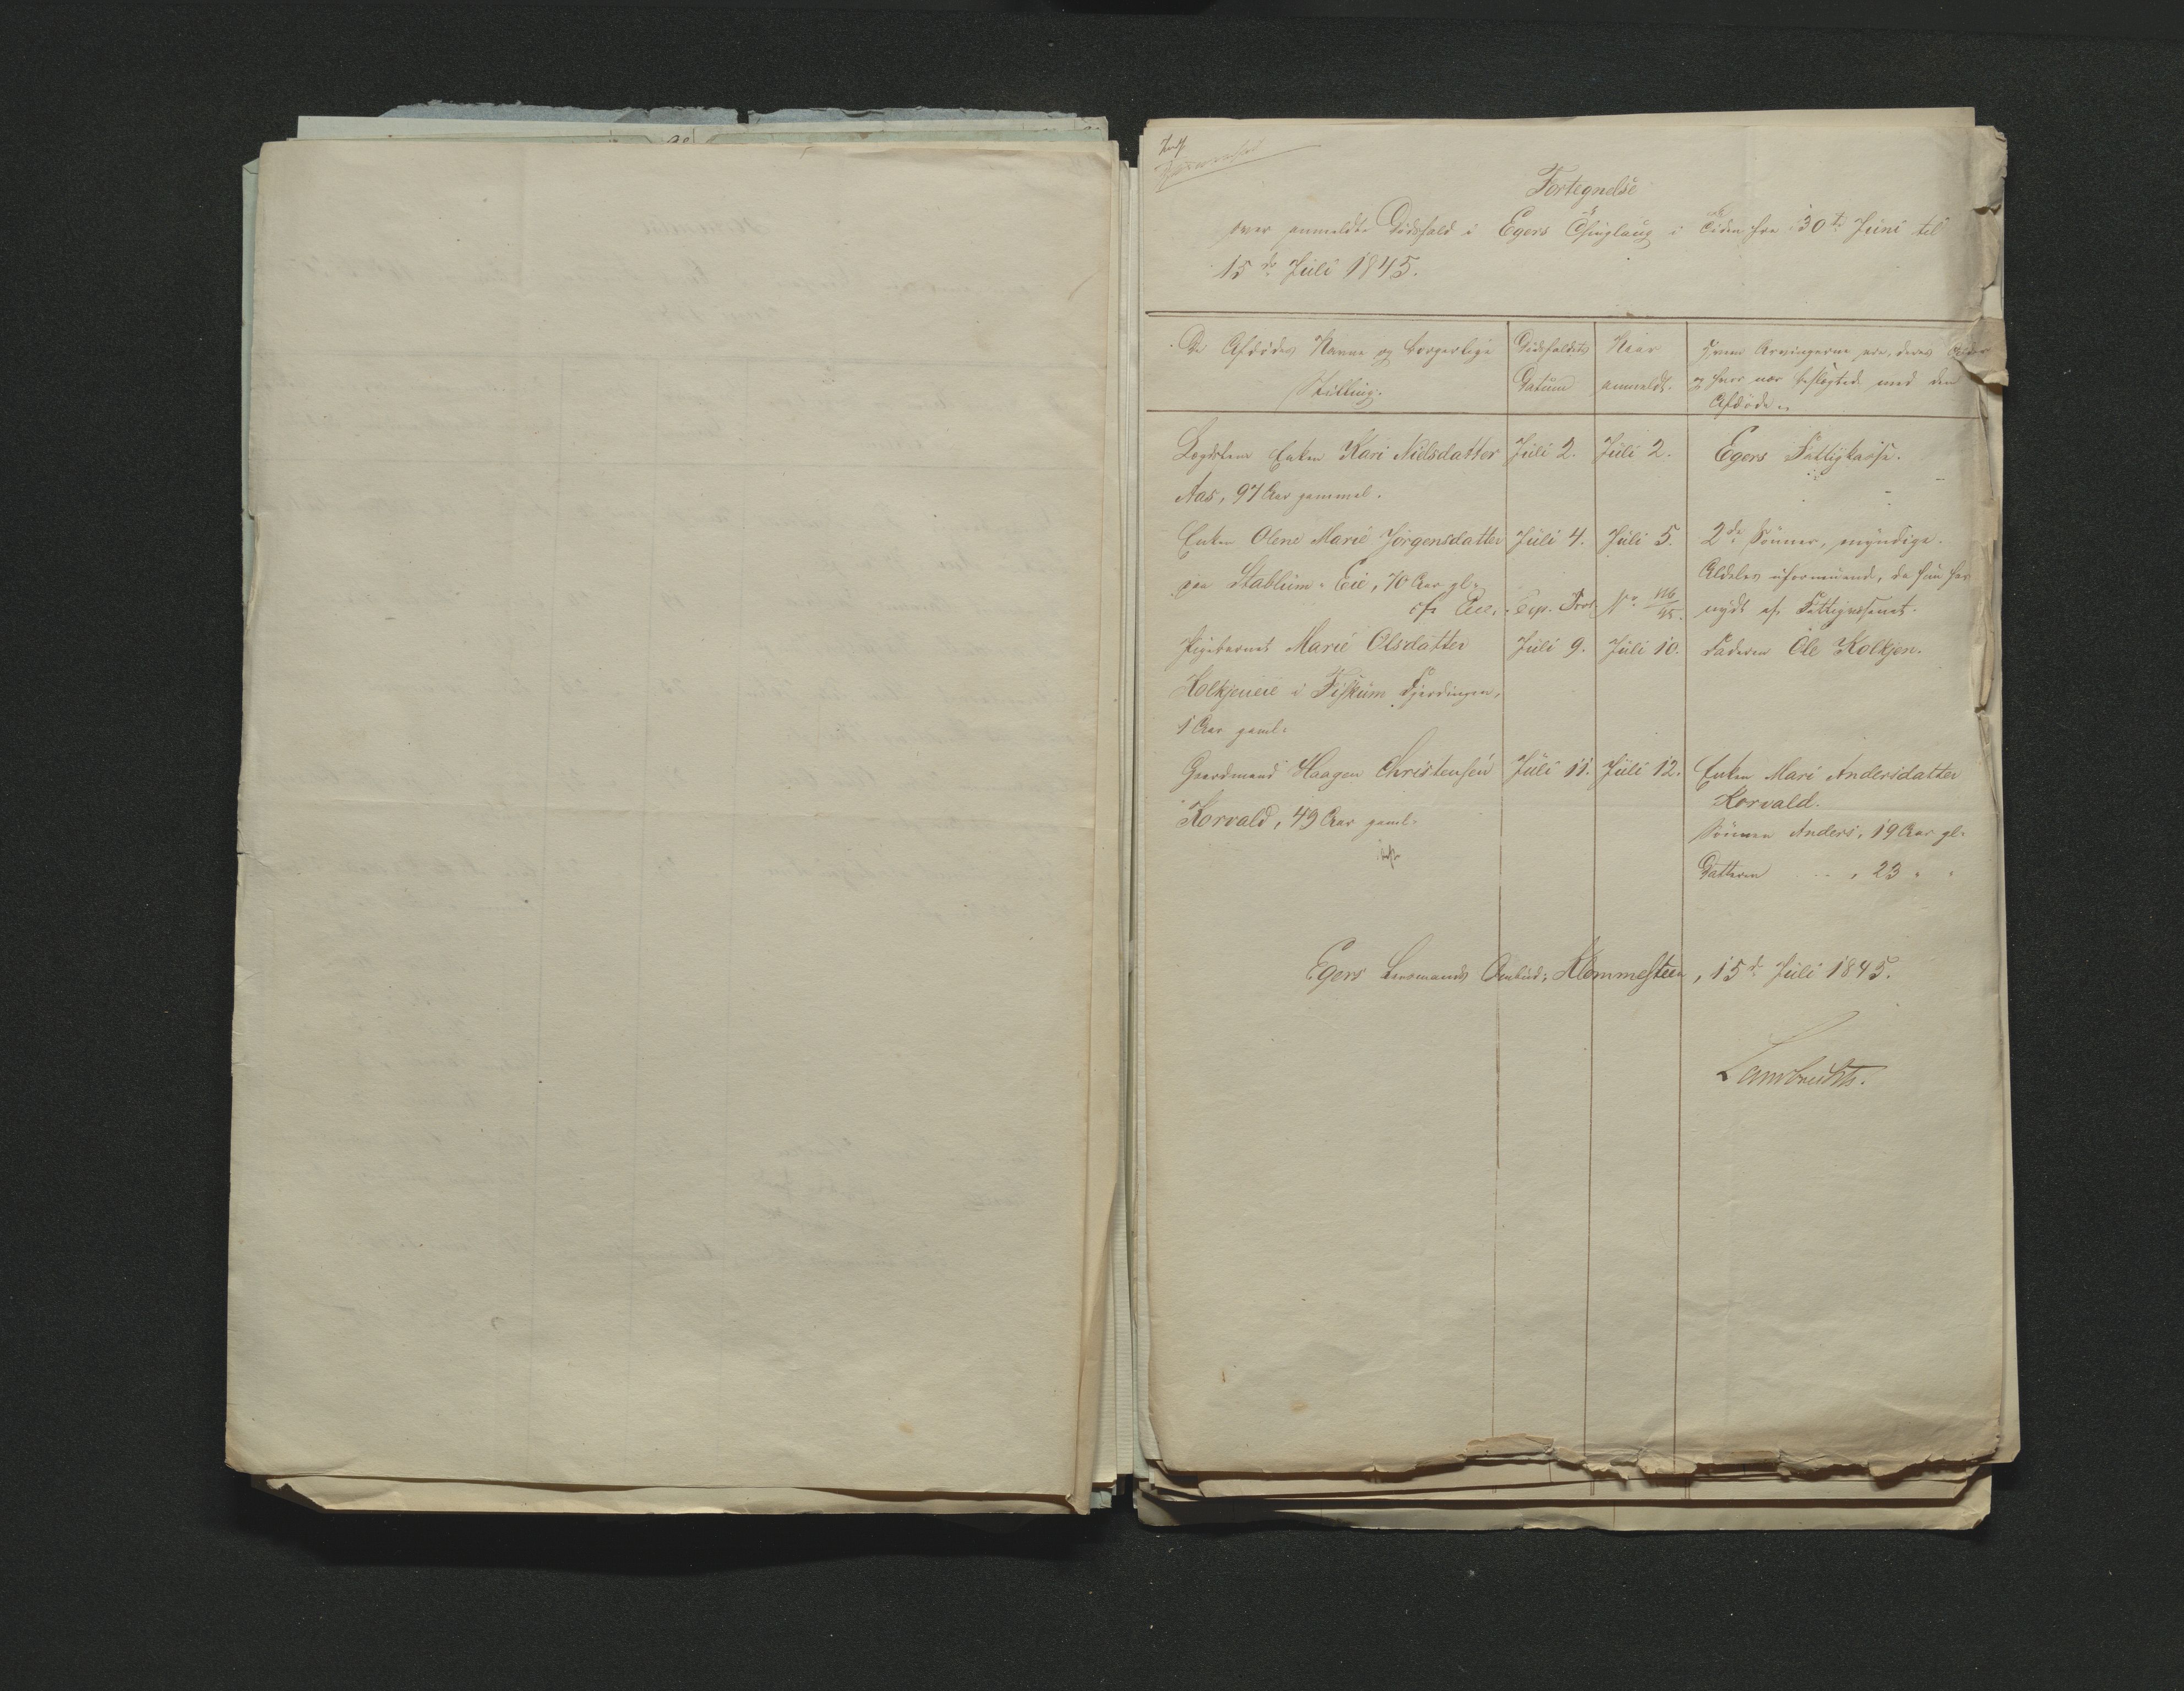 Fortegnelse
over anmeldte Dødsfald i Egers Thinglaug i Tiden fra 30te Juni til
15de Juli 1845.
De Afdødes Navne og borgerlige
Stilling.
Dødsfaldets
Datum
Naar
anmeldt.
Hvem Arvingerne ere, deres Alder
og hvor nær beslægtede med den
Afdøde.
Lægdslem Enken Kari Nielsdatter
Aas, 97 Aar gammel.
Juli 2.
Juli 2.
Egers Fattigkasse.
Enken Olene Marie Jørgensdatter
paa Stablum-Eie, 70 Aar gl.
Juli 4.
Juli 5.
2de Sønner, myndige.
Aldeles uformuende, da hun har
nydt af Fattigvæsenet.
Pigebarnet Marie Olsdatter
Kolkjeneie i Fiskum Fjerdingen,
1 Aar gaml.
Juli 9.
Juli 10.
Faderen Ole Kolkjen.
Gaardmand Haagen Christensen
Korvald, 49 Aar gaml.
Juli 11.
Juli 12.
Enken Mari Andersdatter
Korvald.
Sønnen Anders, 19 Aar gl.
Datteren , 23 " "
Egers Lensmands Ombud, Klommesteen, 15de Juli 1845.
Lambrechts.